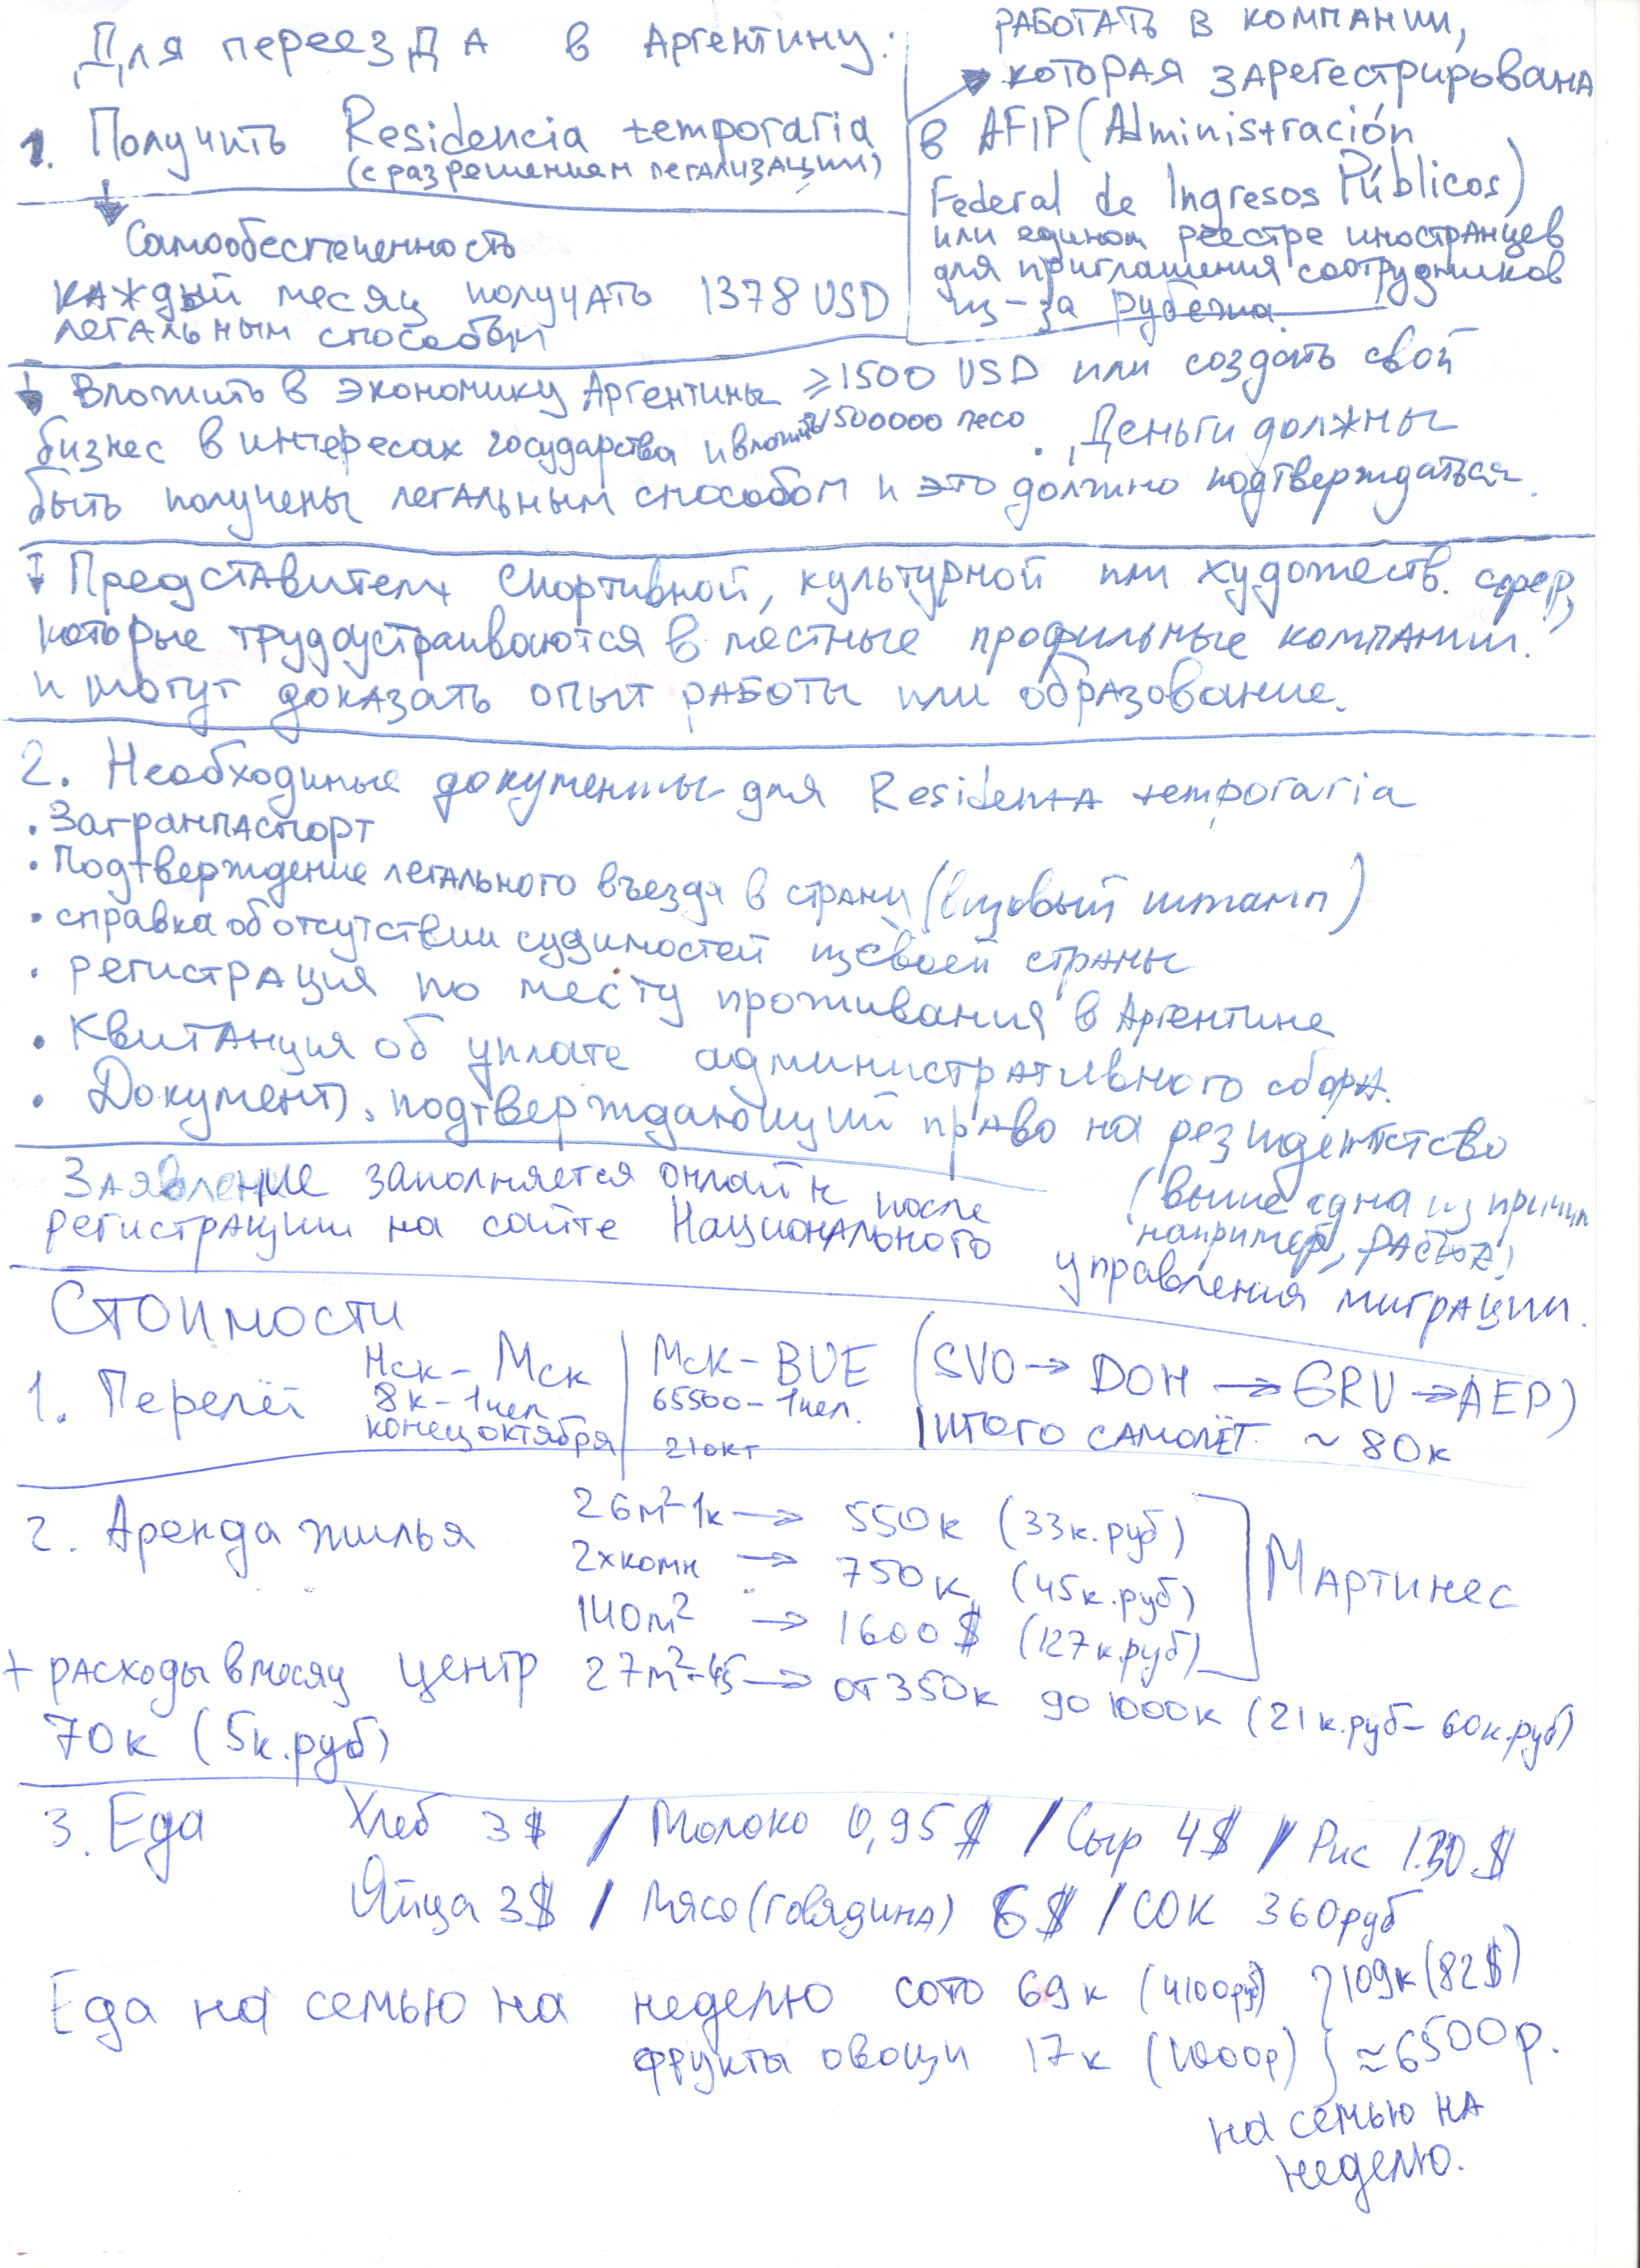 Для переезда в Аргентину:
1. Получить Residencia temporaria
(с разрешением легализации)
работать в компании,
которая зарегестрирована
в AFIP (Administración
Federal de Ingresos Públicos)
или едином реестре иностранцев
для приглашения соотрудников
из-за рубежа.
Самообеспеченность
каждый месяц получать 1378 USD
легальным способом
Вложить в экономику Аргентины ≥1500 USD или создать свой
бизнес в интересах государства и вложить 1500000 песо. Деньги должны
быть получены легальным способом и это должно подтверждаться.
Представители спортивной, культурной или художеств. сфер,
которые трудоустраиваются в местные профильные компании.
и могут доказать опыт работы или образование.
2. Необходимые документы для Residenta temporaria
• Загранпаспорт
• Подтверждение легального въезда в страну (визовый штамп)
• справка об отсутствии судимостей из своей страны
• регистрация по месту проживания в Аргентине
• Квитанция об уплате административного сбора.
• Документ, подтверждающий право на резидентство
(выше одна из причин
например, работа)
Заявление заполняется онлайн после
регистрации на сайте Национального управления миграции.
Стоимости
1. Перелёт
Нск - Мск
8к - 1 чел
конец октября
Мск - BUE
65500 - 1 чел.
21 окт
(SVO → DOH → GRU → AEP)
итого самолёт ~ 80к
2. Аренда жилья
26м² 1к → 550к (33к.руб)
2х комн → 750к (45к.руб)
140м² → 1600$ (127к.руб)
Мартинес
центр 27м²-45 → от 350к до 1000к (21к.руб - 60к.руб)
+ расходы в месяц
70к (5к.руб)
3. Еда
Хлеб 3$ / Молоко 0,95$ / Сыр 4$ / Рис 1.30$
Яйца 3$ / мясо (говядина) 6$ / сок 360руб
Еда на семью на неделю сото 69к (4100руб)
фрукты овощи 17к (1000р)
109к (82$)
≈6500р.
на семью на
неделю.